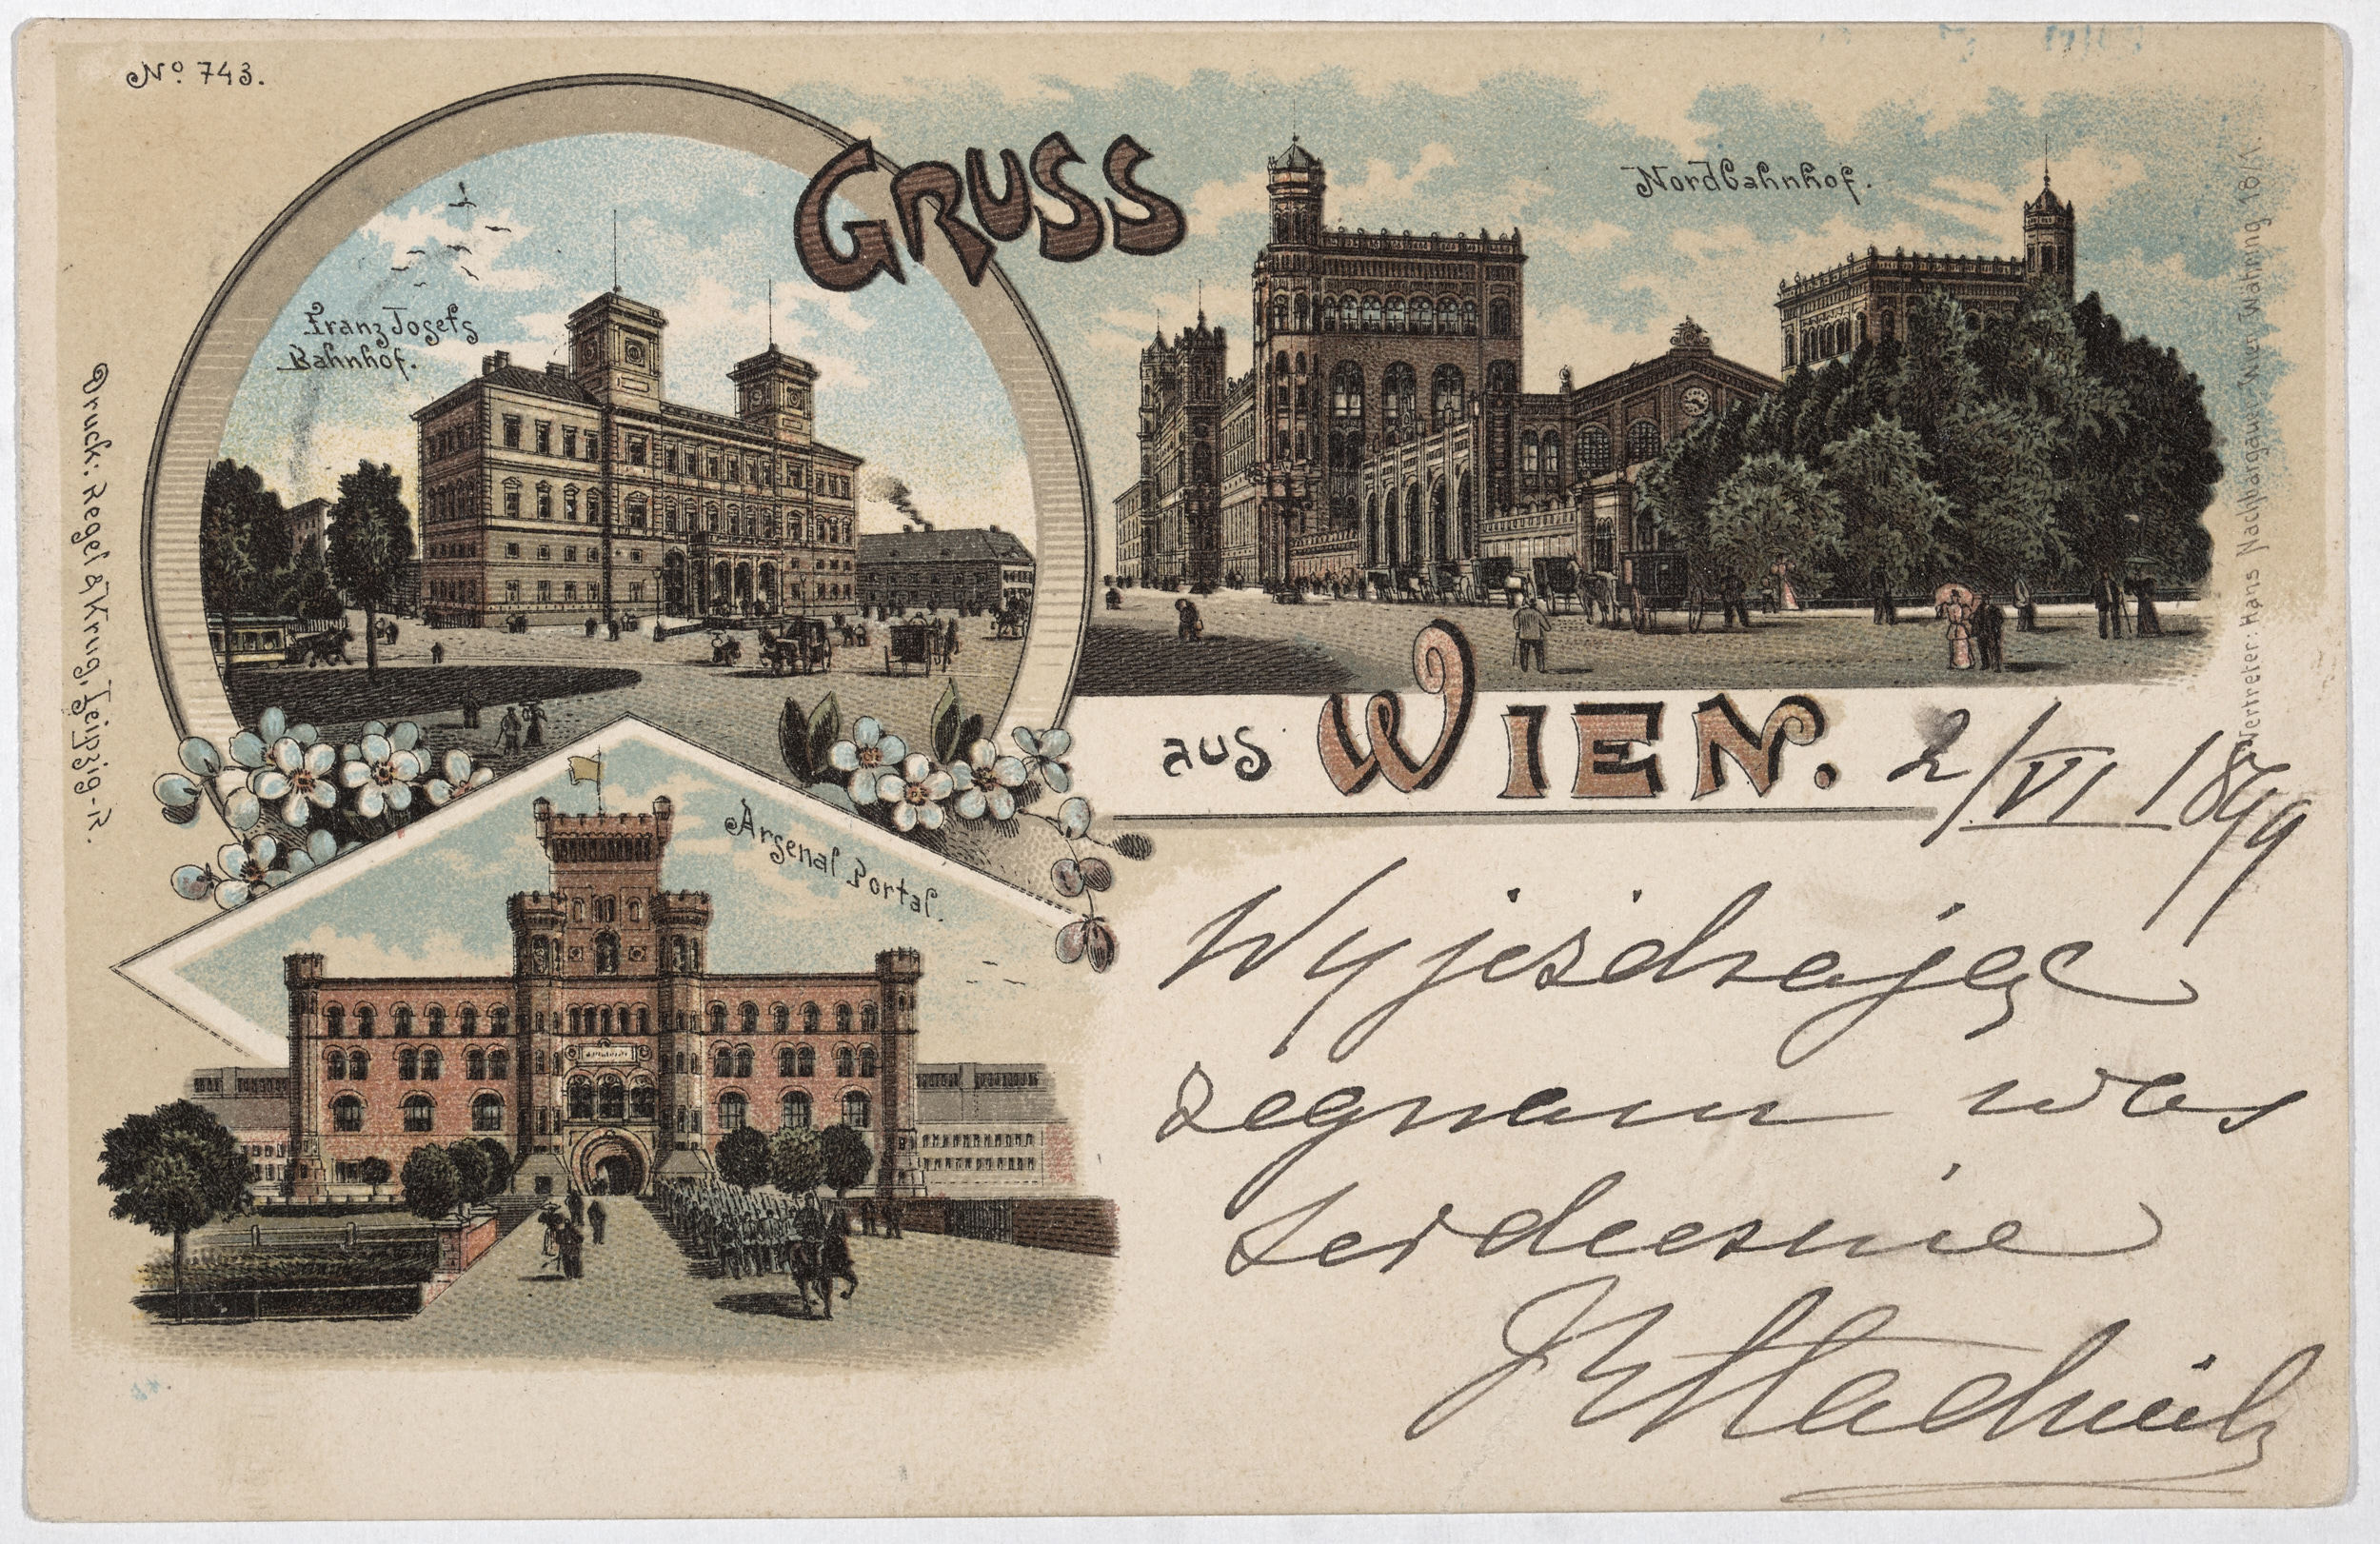 No 743.
GRUSS
Nordbahnhof.
Franz Josefs
Bahnhof.
aus WIEN. 2/VI 1899
Arsenal Portal.
Wyjeżdżając
żegnam was
serdecznie
Druck: Regel & Krug, Leipzig-R.
Vertreter: Hans Nachbargauer, Wien, Währing